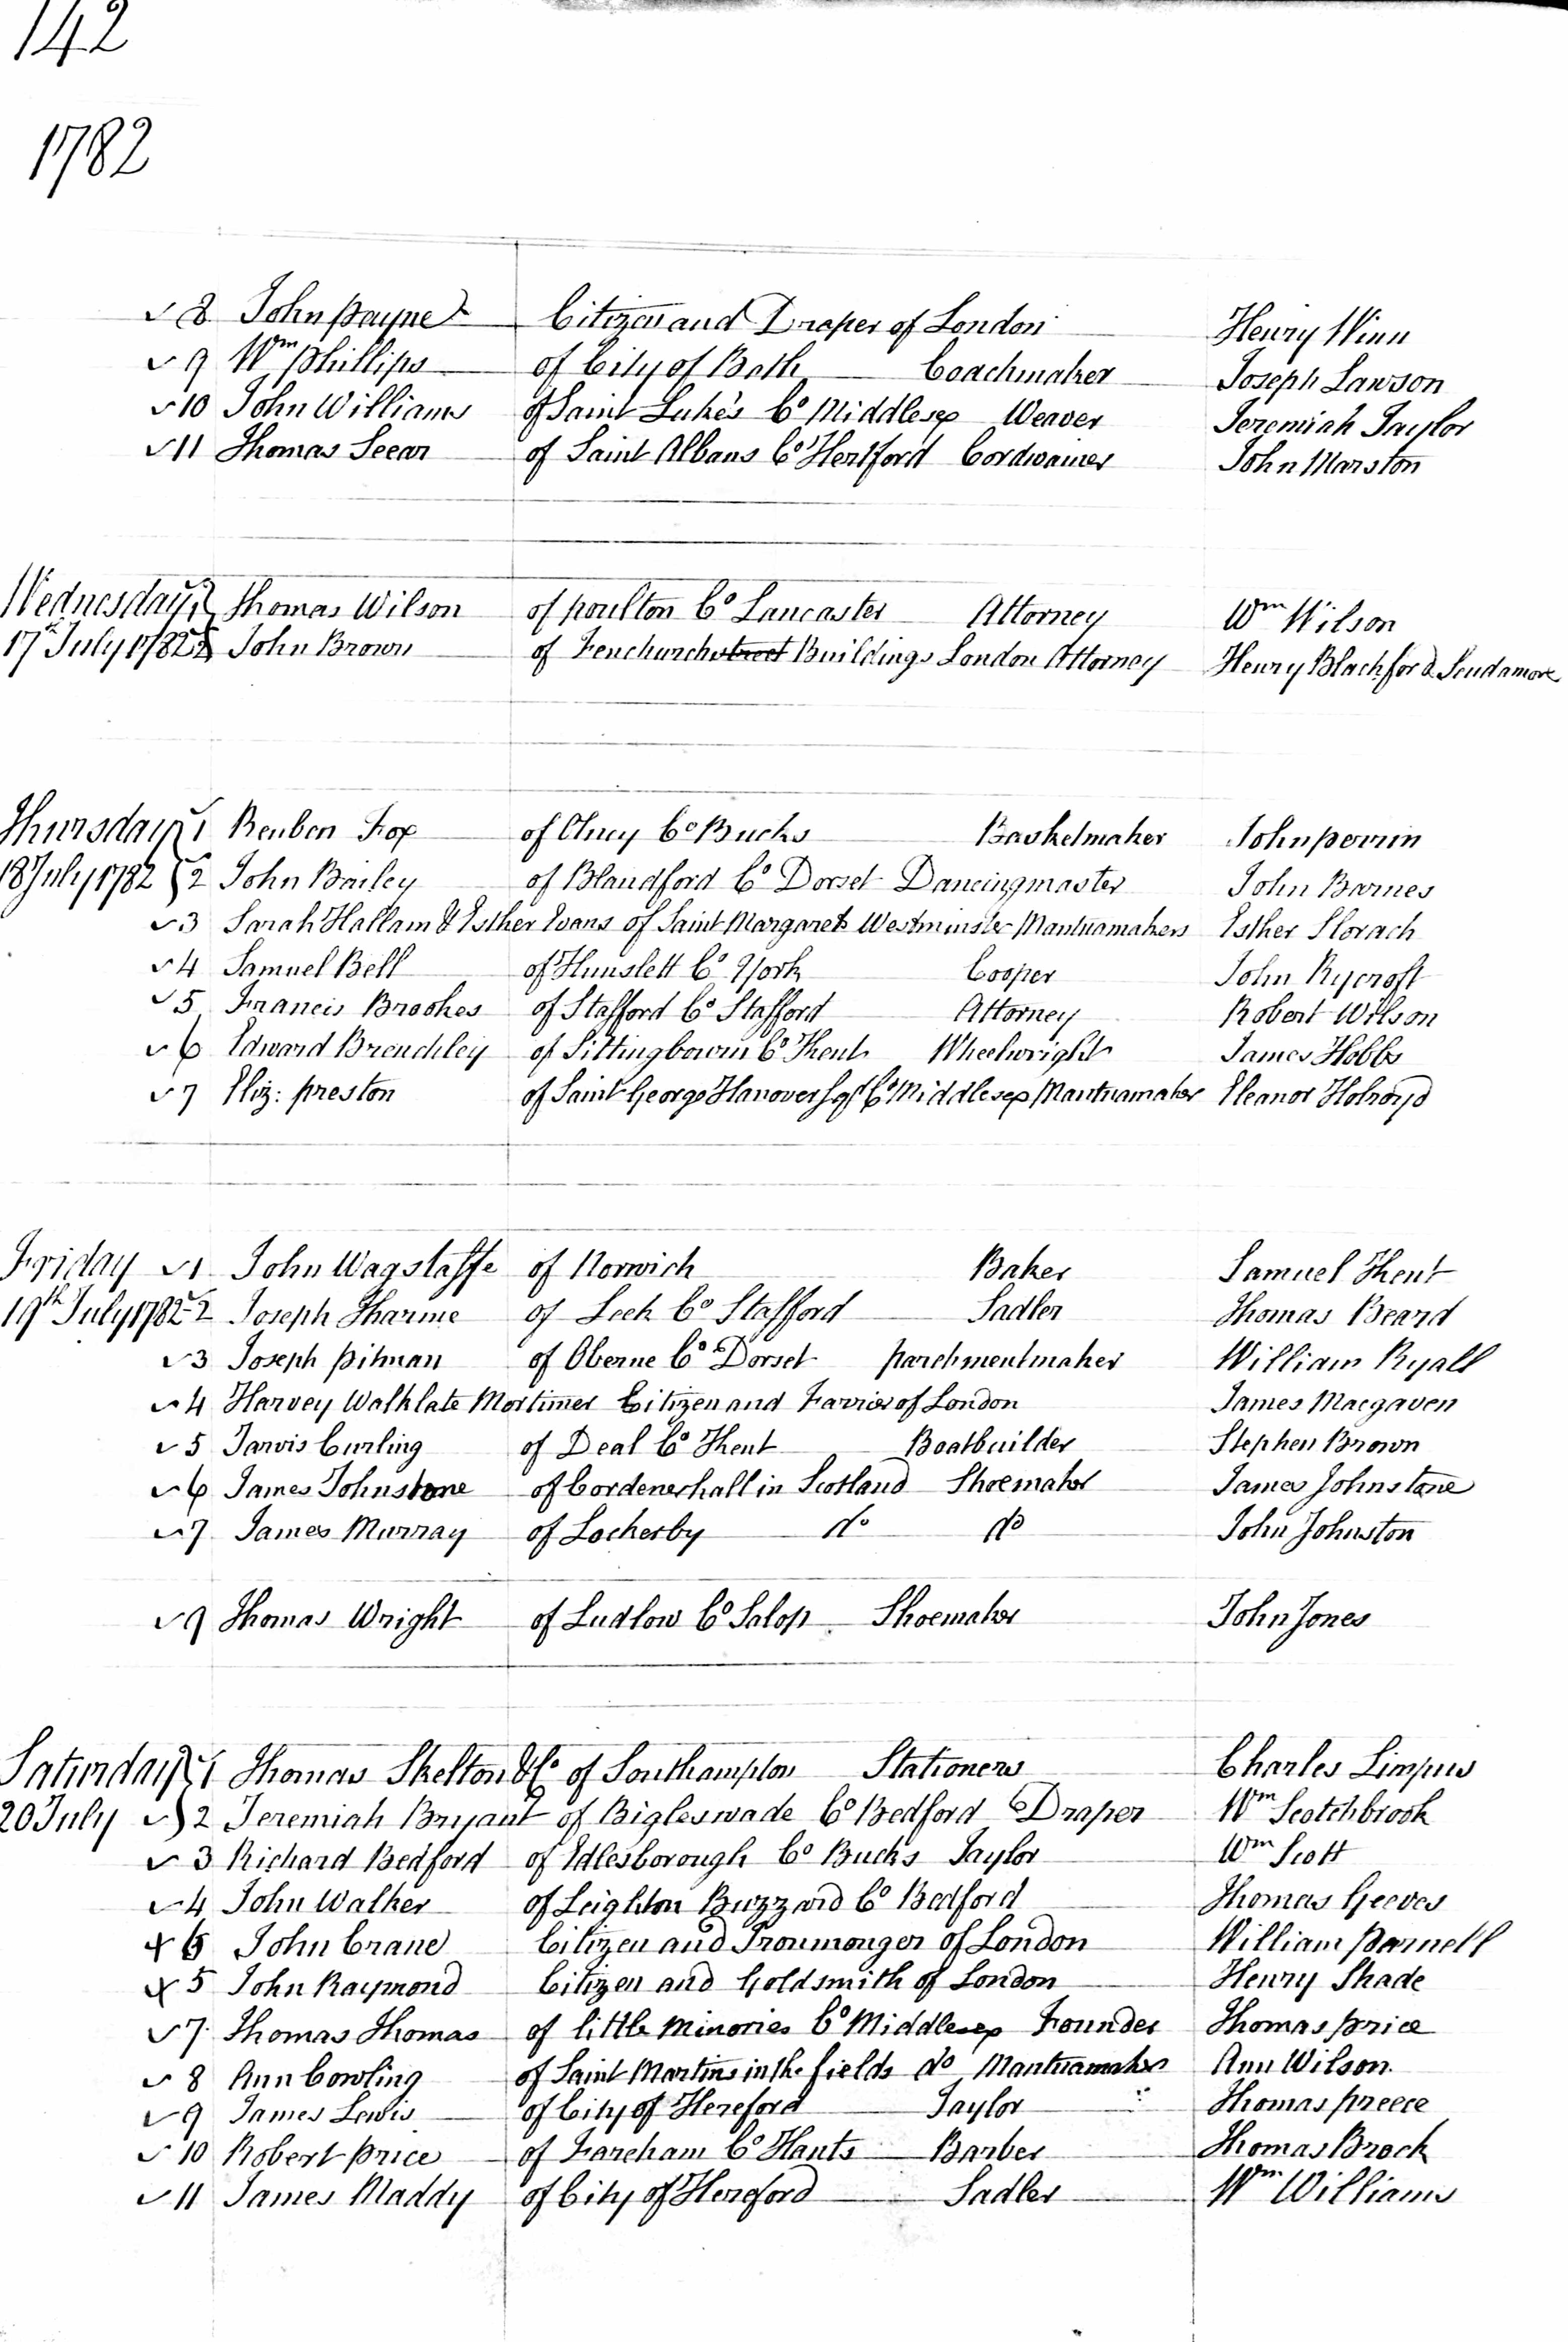 142
1782
8 John Payne Citizen and Draper of London Henry Winn
9 Wm Phillips of City of Bath Coachmaker Joseph Lawson
10 John Williams of Saint Luke's Co Middlesex Weaver Jeremiah Taylor
11 Thomas Seear of Saint Albans Co Hertford Cordwainer John Marston
Wednesday 1 Thomas Wilson of Poulton Co Lancaster Attorney Wm Wilson
17th July 1782 2 John Brown of Fenchurch street Buildings London Attorney Henry Blachford Scudamore
Thursday 1 Reuben Fox of Olney Co Bucks Basketmaker John Perrin
18 July 1782 2 John Bailey of Blandford Co Dorset Dancingmaster John Barnes
3 Sarah Hallam & Esther Evans of Saint Margarets Westminster Mantuamakers Esther Storach
4 Samuel Bell of Hunslett Co York Cooper John Rycroft
5 Francis Brookes of Stafford Co Stafford Attorney Robert Wilson
6 Edward Brenchley of Sittingbourn Co Kent Wheelwright James Hobbs
7 Eliz: Preston of Saint George Hanover Sqr Co Middlesex Mantuamaker Eleanor Holroyd
Friday 1 John Wagstaffe of Norwich Baker Samuel Kent
19th July 1782 2 Joseph Tharme of Leek Co Stafford Sadler Thomas Beard
3 Joseph Pitman of Oberne Co Dorset Parchmentmaker William Ryall
4 Harvey Walklate Mortimer Citizen and Farrier of London James Macgaven
5 Jarvis Curling of Deal Co Kent Boatbuilder Stephen Brown
6 James Johnstone of Cordenerhall in Scotland Shoemaker James Johnstone
7 James Murray of Lockerby do do John Johnston
9 Thomas Wright of Ludlow Co Salop Shoemaker John Jones
Saturday 1 Thomas Skelton & Co of Southampton Stationers Charles Limpus
20 July 2 Jeremiah Bryant of Bigleswade Co Bedford Draper Wm Scotchbrook
3 Richard Bedford of Edlesborough Co Bucks Taylor Wm Scott
4 John Walker of Leighton Buzzard Co Bedford Thomas Geeves
6 John Crane Citizen and Ironmonger of London William Parnell
5 John Raymond Citizen and Goldsmith of London Henry Shade
7 Thomas Thomas of little Minories Co Middlesex Founder Thomas Price
8 Ann Cowling of Saint Martins in the fields do Mantuamaker Ann Wilson
9 James Lewis of City of Hereford Taylor Thomas Preece
10 Robert Price of Fareham Co Hants Barber Thomas Brock
11 James Maddy of City of Hereford Sadler Wm Williams